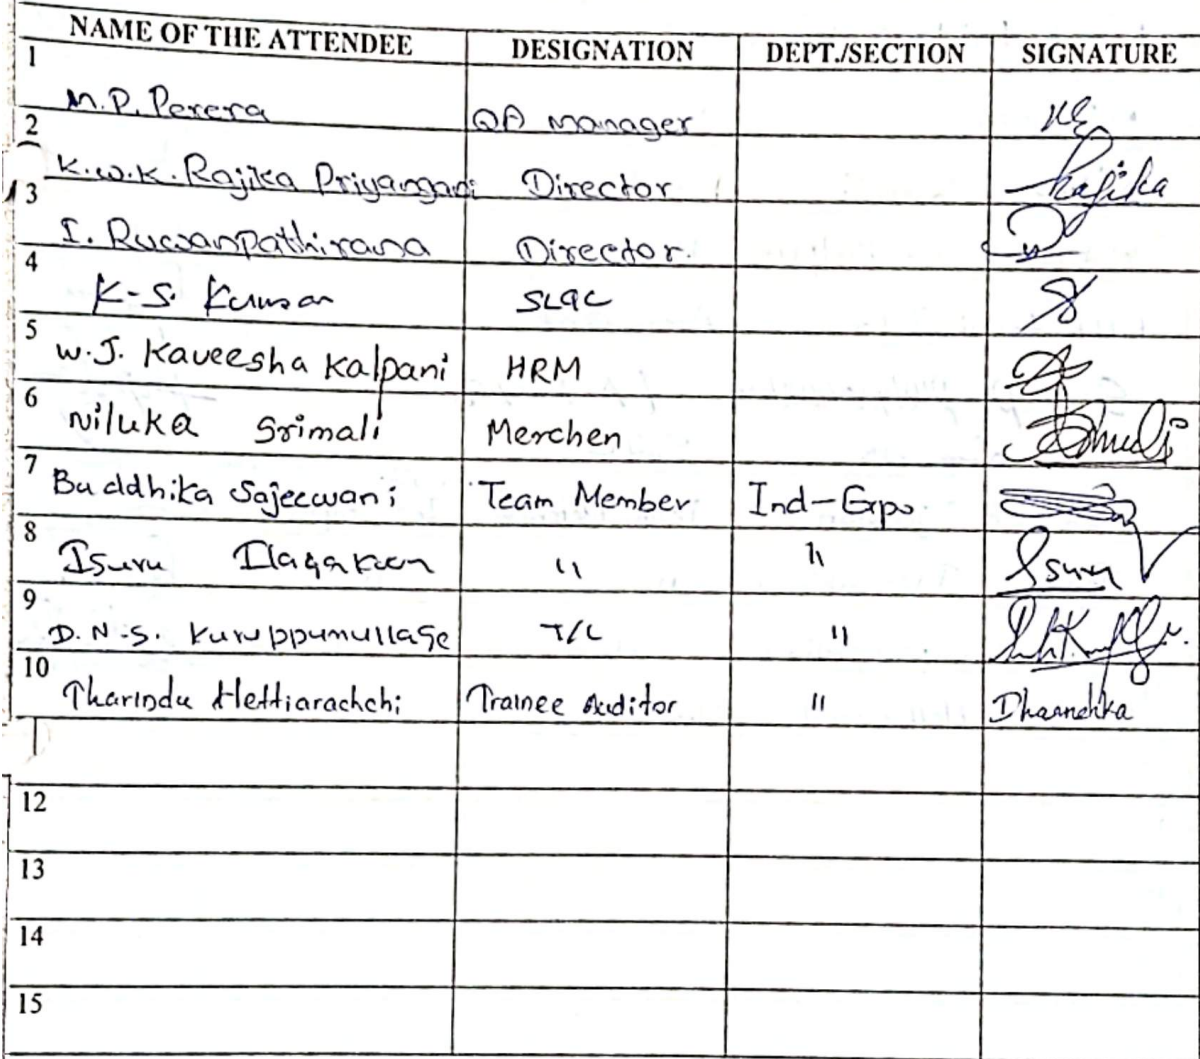 NAME OF THE ATTENDEE DESIGNATION DEPT./SECTION SIGNATURE
1 M.P. Perera QA Manager
2 K.W.K. Rajika Priyangani Director Rajika
3 I. Ruwanpathirana Director.
4 K-S. Kumsan SLQC
5 W.J. Kaveesha Kalpani HRM
6 Niluka Srimali Merchen
7 Buddhika Sajeewani Team Member Ind-Expo
8 Isuru " " Isuru
9 D.N.S. Kuruppumullage T/L "
10 Tharindu Hettiarachchi Trainee Auditor "
12
13
14
15